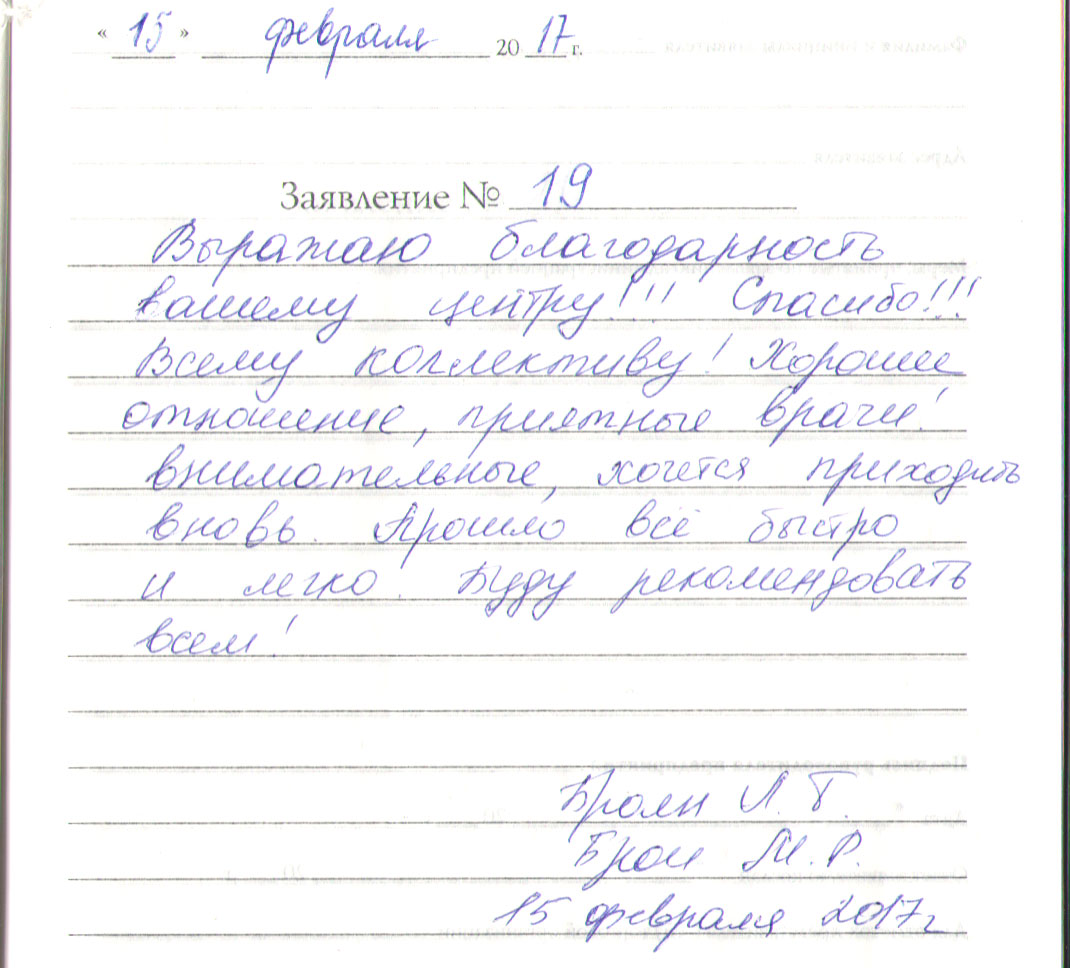 « 15 » февраля 2017 г.
Заявление № 19
Выражаю благодарность
вашему центру!!! Спасибо!!!
Всему коллективу! Хорошее
отношение, приятные врачи!
внимательные, хочется приходить
вновь. Прошло всё быстро
и легко. Буду рекомендовать
всем!
Л. Т.
М. Р.
15 февраля 2017 г